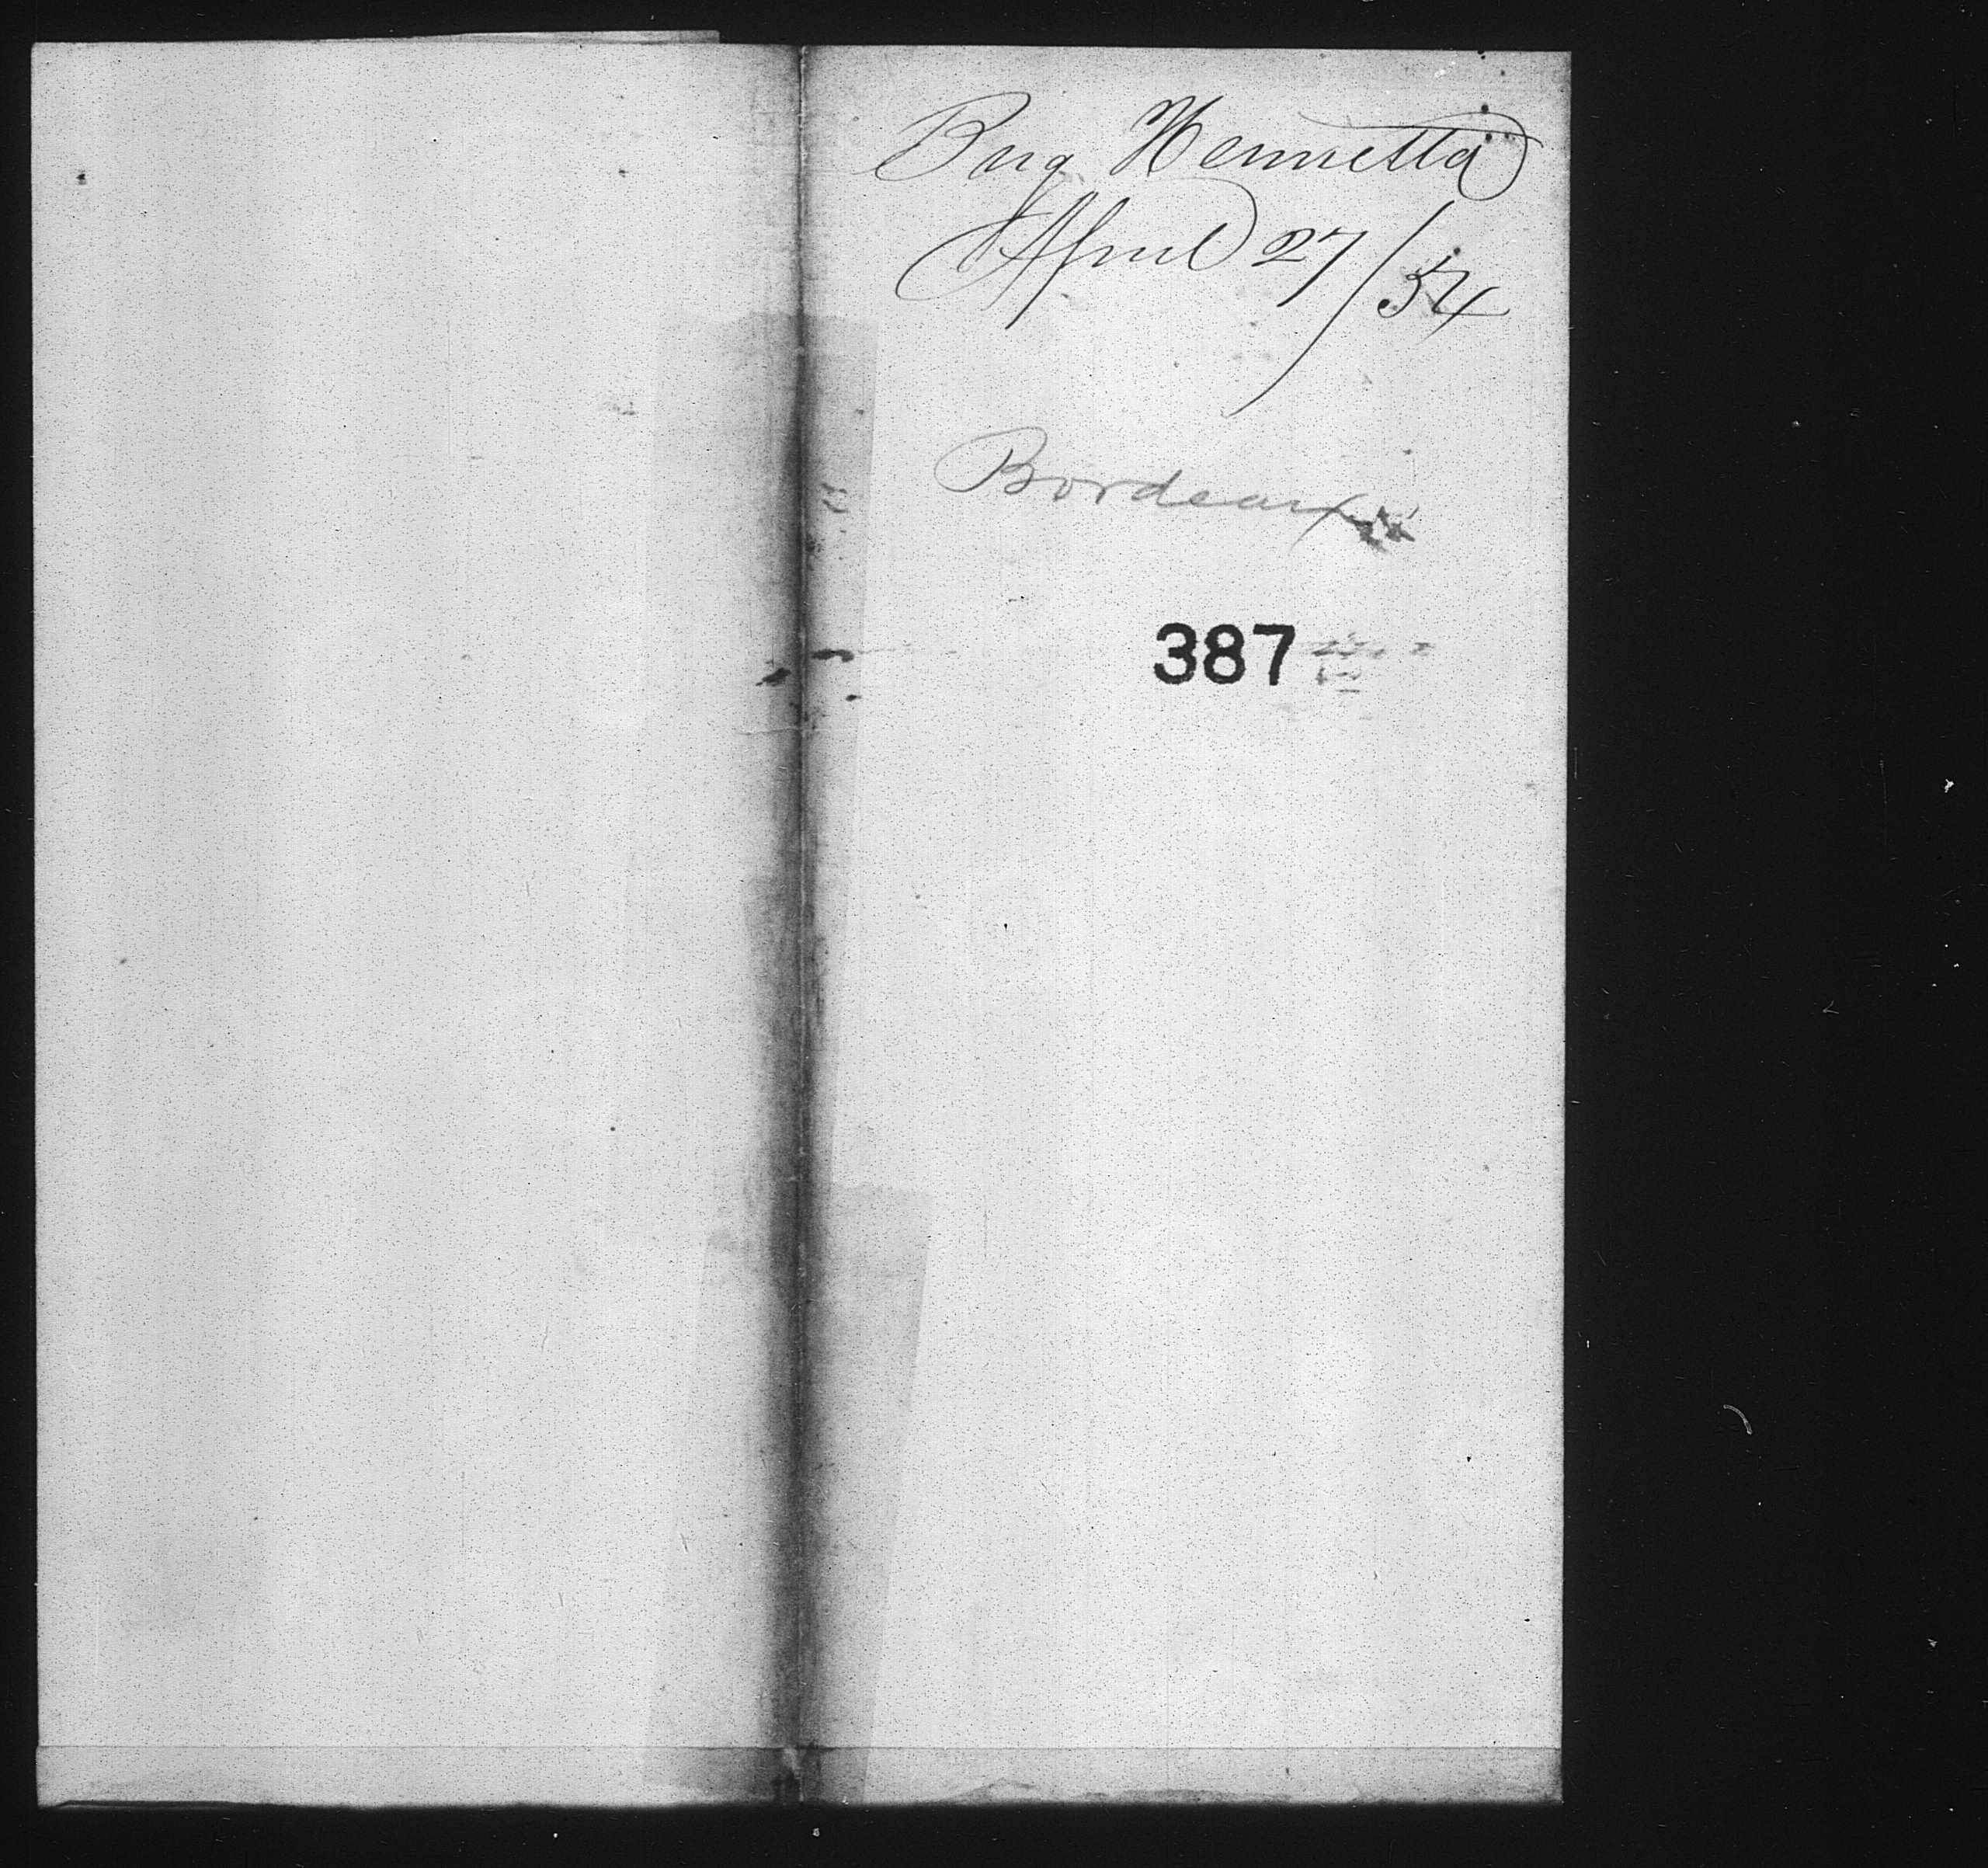 Brig Henrietta
April 27/54
Bordeaux
387